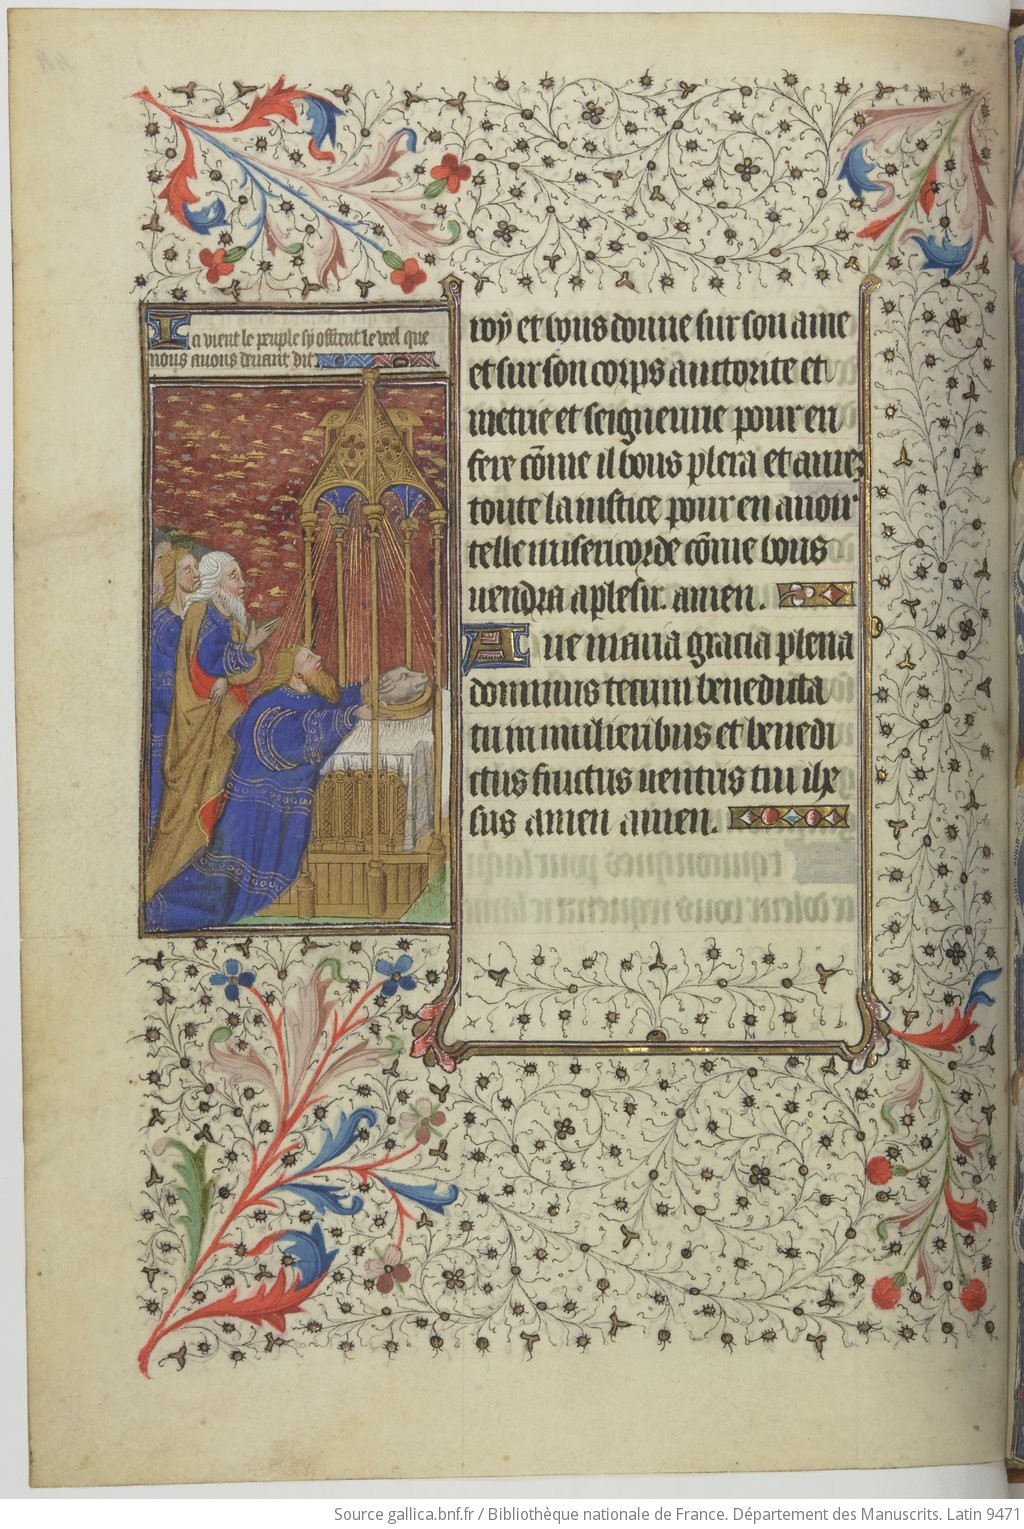 La vient le peuple sy offrent le veel que
nous auons deuant dit
roy et vous donne sur son ame
et sur son corps auctorite et
metrie et seigneurie pour en
fere cõme il vous plera et auez
toute la iustice pour en auoir
telle misericorde cõme vous
vendra a plesir. amen.
Aue maria gracia plena
dominus tecum benedicta
tu in mulieribus et benedi
ctus fructus uentris tui ihe
sus amen amen.
Source gallica.bnf.fr / Bibliothèque nationale de France. Département des Manuscrits. Latin 9471